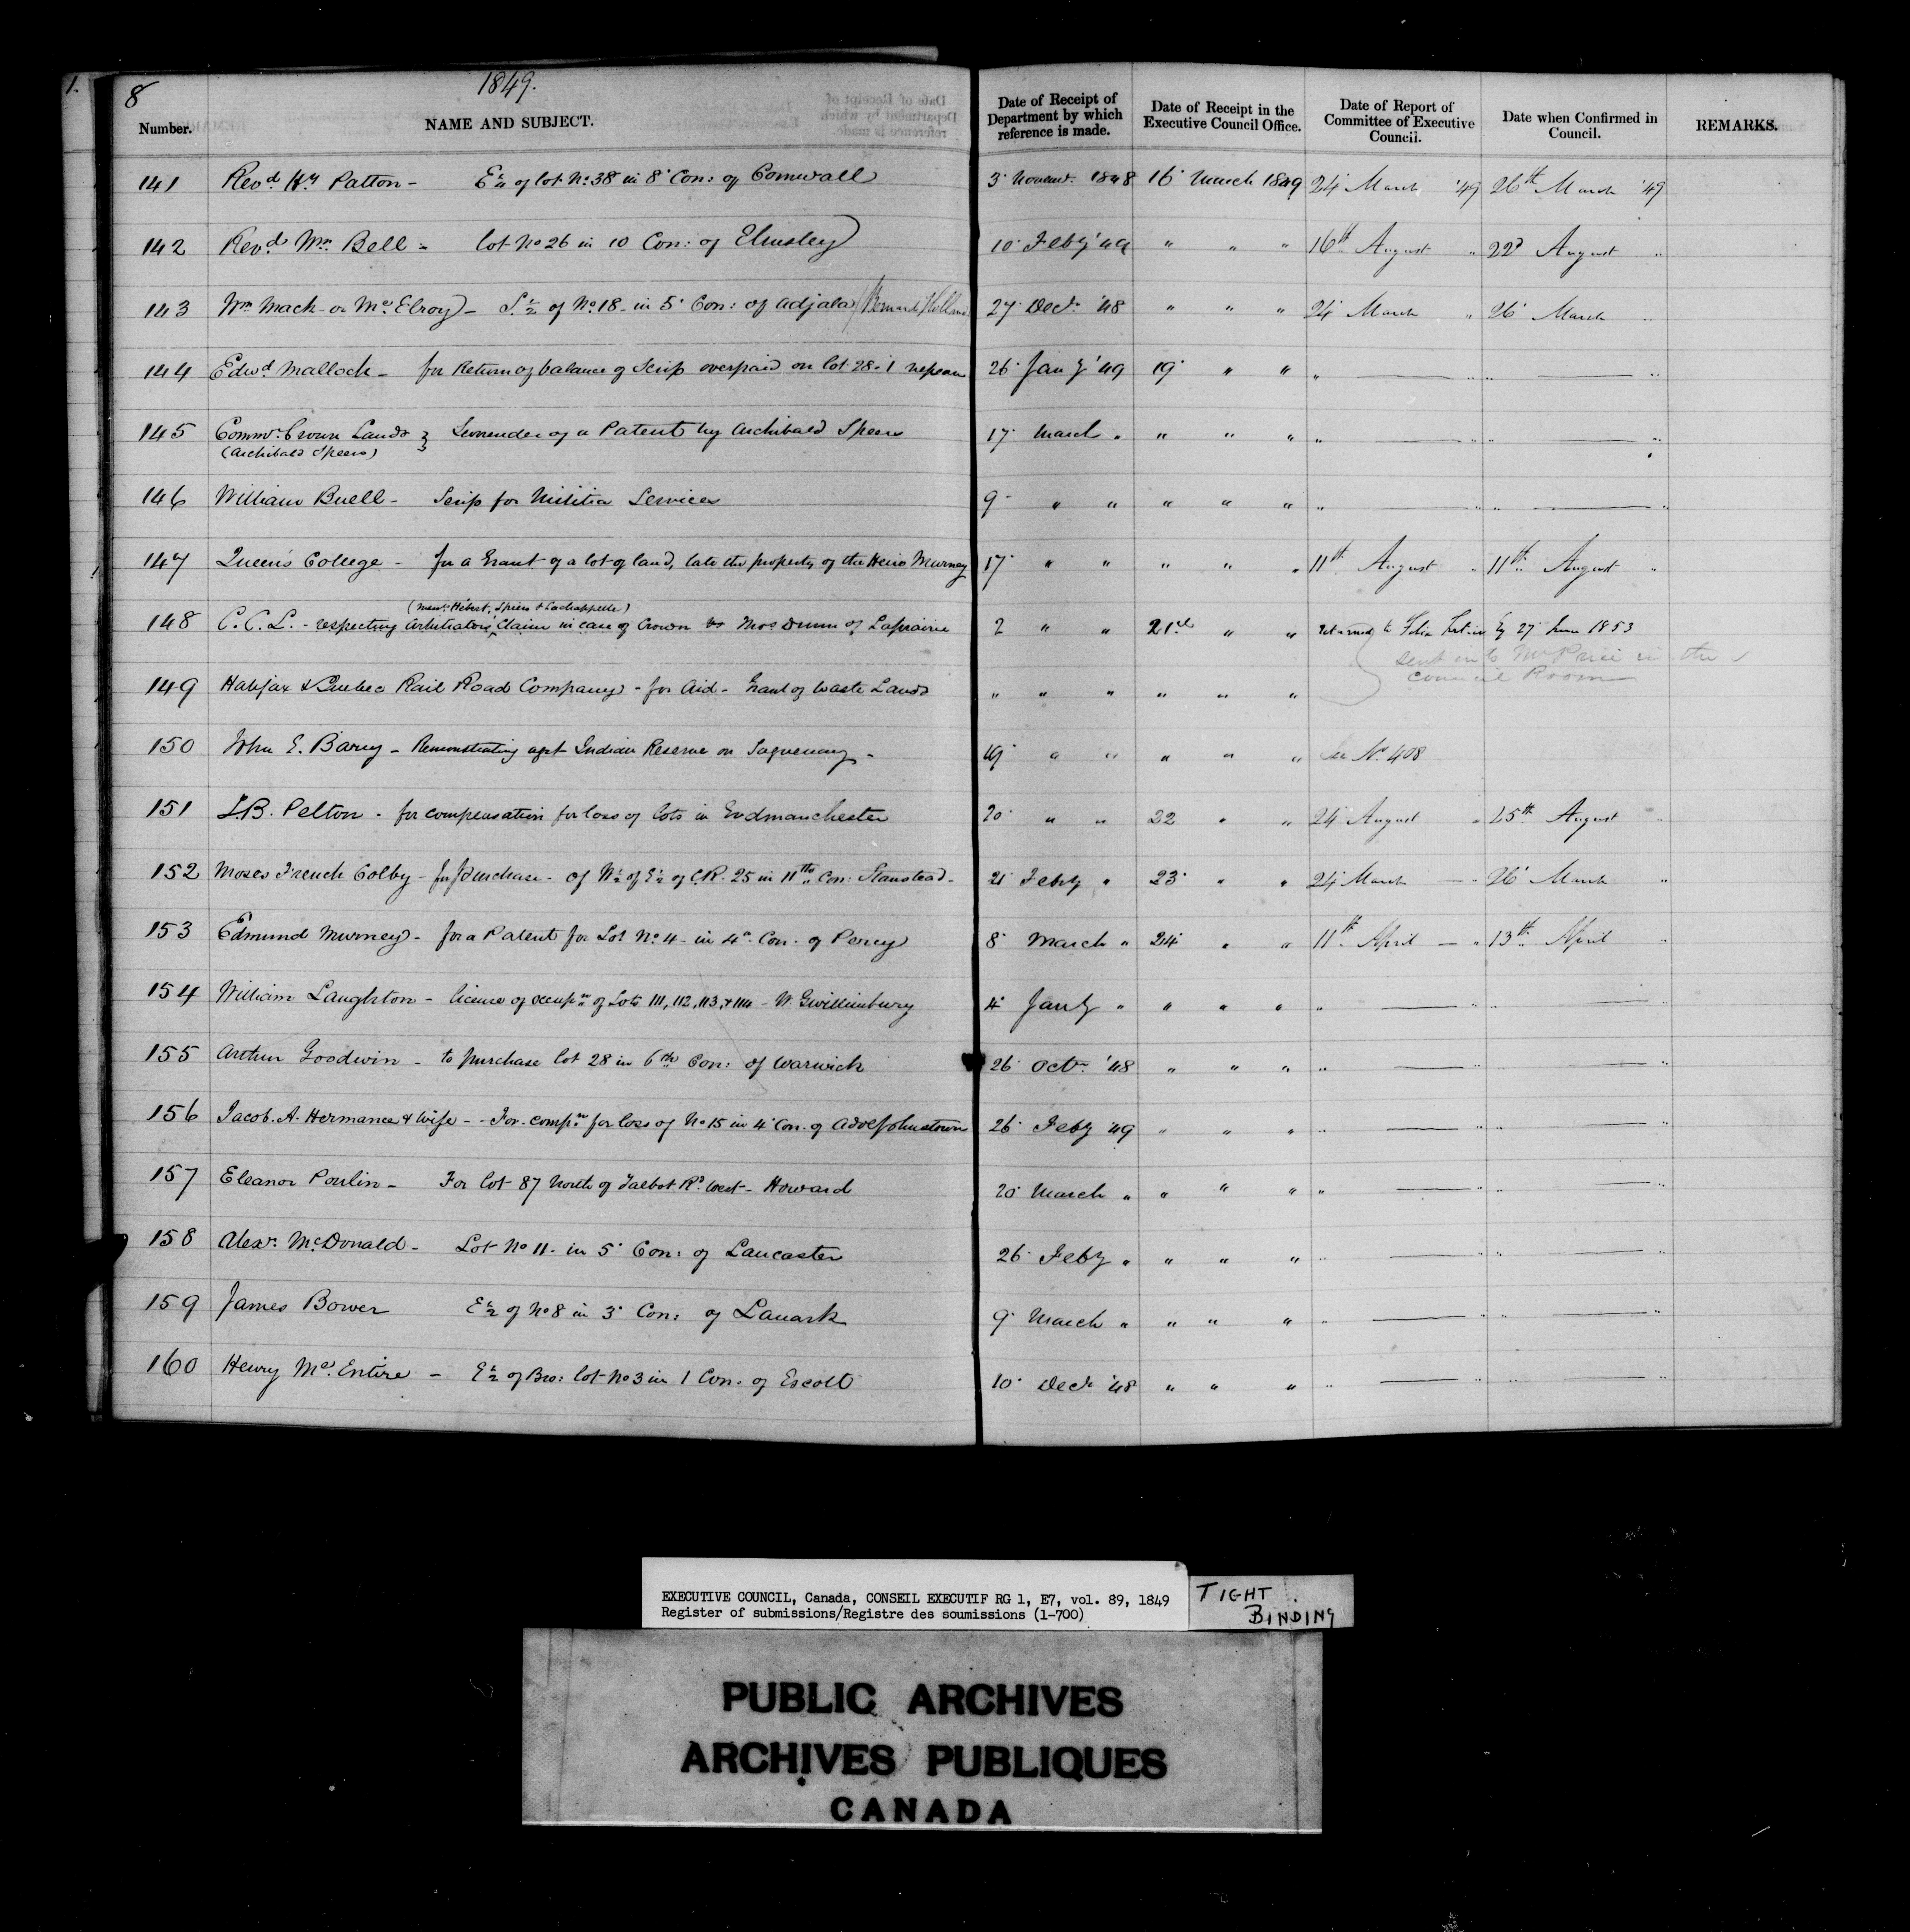 1.
8
1849.
Number. NAME AND SUBJECT. Date of Receipt of Department by which reference is made. Date of Receipt in the Executive Council Office. Date of Report of Committee of Executive Council. Date when Confirmed in Council. REMARKS.
141 Revd. Hy. Patton - E 1/4 of lot No. 38 in 8 Con: of Cornwall 3 Novemr. 1848 16 March 1849 24 March '49 26th March '49
142 Revd. Wm. Bell - lot No 26 in 10 Con: of Elmsley 10 Feby '49 " " " 16th August " 22d August "
143 Wm Mack or Mc.Elroy - S. 1/2 of No. 18 in 5 Con: of Adjala 27 Decr. '48 " " " 24 March " 26 March "
144 Edwd Malloch - for Return of balance of Scrip overpaid on lot 28. 1 Nepean 26 Jany '49 19 " " " — " " — "
145 Commr. Crown Lands } Surrender of a Patent by Archibald Speers 17 March " " " " " — " " — "
(Archibald Speers)
146 William Buell - Scrip for Militia Services 9 " " " " " " — " " — "
147 Queen's College - for a Grant of a lot of land, late the property of the Heirs Murney 17 " " " " " 11th August " 11th August "
(Messrs. Hébert, Spiers & Lachappelle)
148 C. C. L. - respecting Arbitrators' Claim in case of Crown vs Mos Dunn of Laprairie 2 " " 21st " " returned to Felix Fortier Eq 27 June 1853
sent in to Mr Price in the
Council Room
149 Halifax & Quebec Rail Road Company - for Aid - Grant of Waste Lands " " " " " "
150 John E. Barry - Remonstrating agst Indian Reserve on Saguenay - 19 " " " " " See No. 408
151 T.B. Pelton - for compensation for loss of lots in Godmanchester 20 " " 22 " " 24 August " 25th August "
152 Moses French Colby - for purchase - of W 1/2 of E 1/2 of C.R. 25 in 11th Con: Stanstead - 21 Feby " 23 " " 24 March — " 26 March "
153 Edmund Murney - for a Patent for Lot No. 4 - in 4th Con. of Percy 8 March " 24 " " 11th April — " 13th April "
154 William Laughton - licence of occupn of Lots 111, 112, 113, & 114 - W. Gwillimbury 4 Jany " " " " " — " " — "
155 Arthur Goodwin - to purchase lot 28 in 6th Con: of Warwick 26 Octr. '48 " " " " — " " — "
156 Jacob. A. Hermance & Wife - - For compn for loss of No 15 in 4 Con. of Adolphustown 26 Feby '49 " " " " — " " — "
157 Eleanor Poulin - For lot 87 North of Talbot Rd. West - Howard 20 March " " " " " — " " — "
158 Alexr. McDonald - Lot No 11 - in 5 Con: of Lancaster 26 Feby " " " " " — " " — "
159 James Bower E 1/2 of No 8 in 3 Con: of Lanark 9 March " " " " " — " " — "
160 Henry Mc.Entire - E 1/2 of Bro: lot No 3 in 1 Con. of Escott 10 Decr '48 " " " " — " " — "
EXECUTIVE COUNCIL, Canada, CONSEIL EXECUTIF RG 1, E7, vol. 89, 1849
Register of submissions/Registre des soumissions (1-700)
TIGHT
BINDING
PUBLIC ARCHIVES
ARCHIVES PUBLIQUES
CANADA